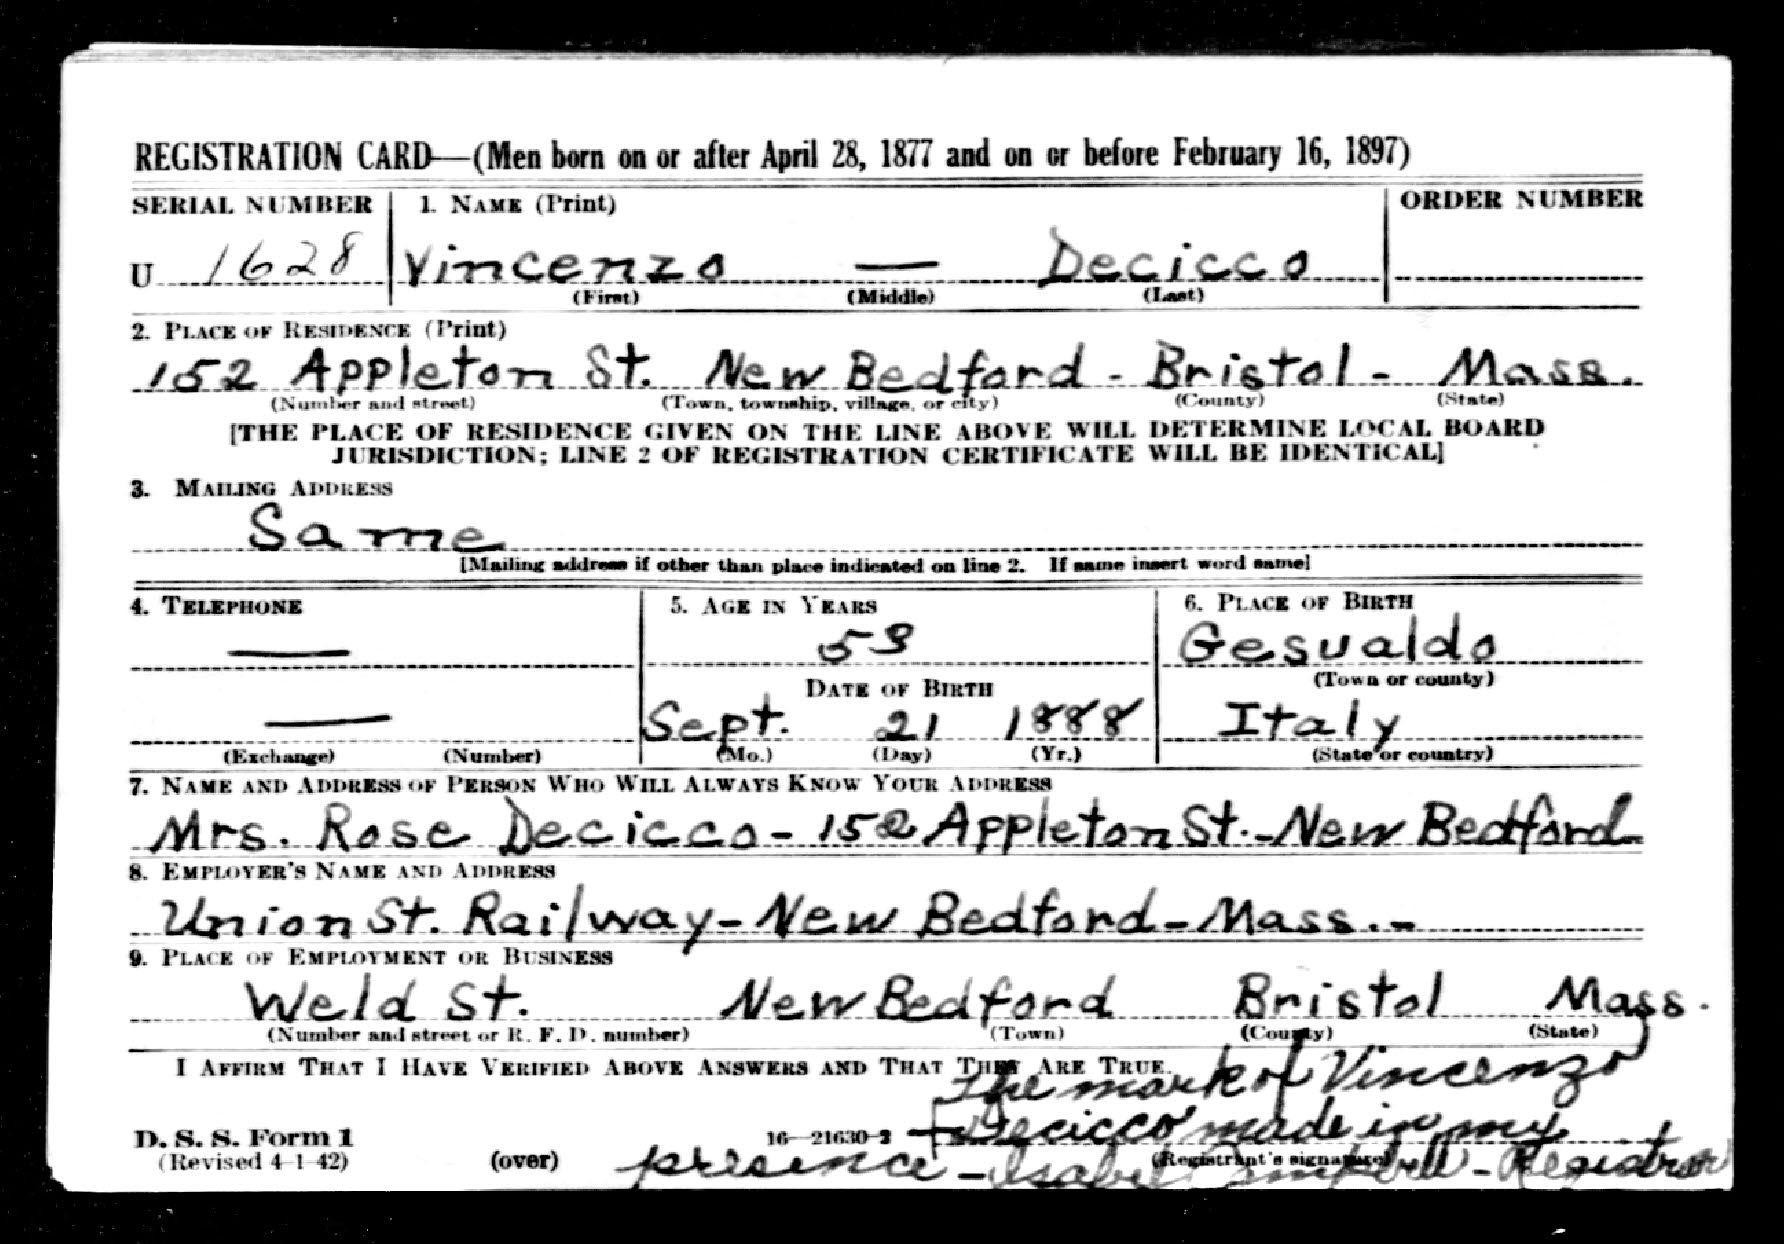 REGISTRATION CARD—(Men born on or after April 28, 1877 and on or before February 16, 1897)
SERIAL NUMBER 1. NAME (Print) ORDER NUMBER
U 1628 Vincenzo — Decicco
(First) (Middle) (Last)
2. PLACE OF RESIDENCE (Print)
152 Appleton St. New Bedford - Bristol - Mass.
(Number and street) (Town, township, village, or city) (County) (State)
[THE PLACE OF RESIDENCE GIVEN ON THE LINE ABOVE WILL DETERMINE LOCAL BOARD
JURISDICTION; LINE 2 OF REGISTRATION CERTIFICATE WILL BE IDENTICAL]
3. MAILING ADDRESS
Same
[Mailing address if other than place indicated on line 2. If same insert word same]
4. TELEPHONE 5. AGE IN YEARS 6. PLACE OF BIRTH
— 53 Gesualdo
(Town or county)
DATE OF BIRTH
— Sept. 21 1888 Italy
(Exchange) (Number) (Mo.) (Day) (Yr.) (State or country)
7. NAME AND ADDRESS OF PERSON WHO WILL ALWAYS KNOW YOUR ADDRESS
Mrs. Rose Decicco - 152 Appleton St. - New Bedford
8. EMPLOYER'S NAME AND ADDRESS
Union St. Railway - New Bedford - Mass. -
9. PLACE OF EMPLOYMENT OR BUSINESS
Weld St. New Bedford Bristol Mass.
(Number and street or R. F. D. number) (Town) (County) (State)
I AFFIRM THAT I HAVE VERIFIED ABOVE ANSWERS AND THAT THEY ARE TRUE.
The mark of Vincenzo
D. S. S. Form 1 16—21630-2 Decicco made in my
(Revised 4-1-42) (over) (Registrant's signature)
presence - Isabel - Registrar